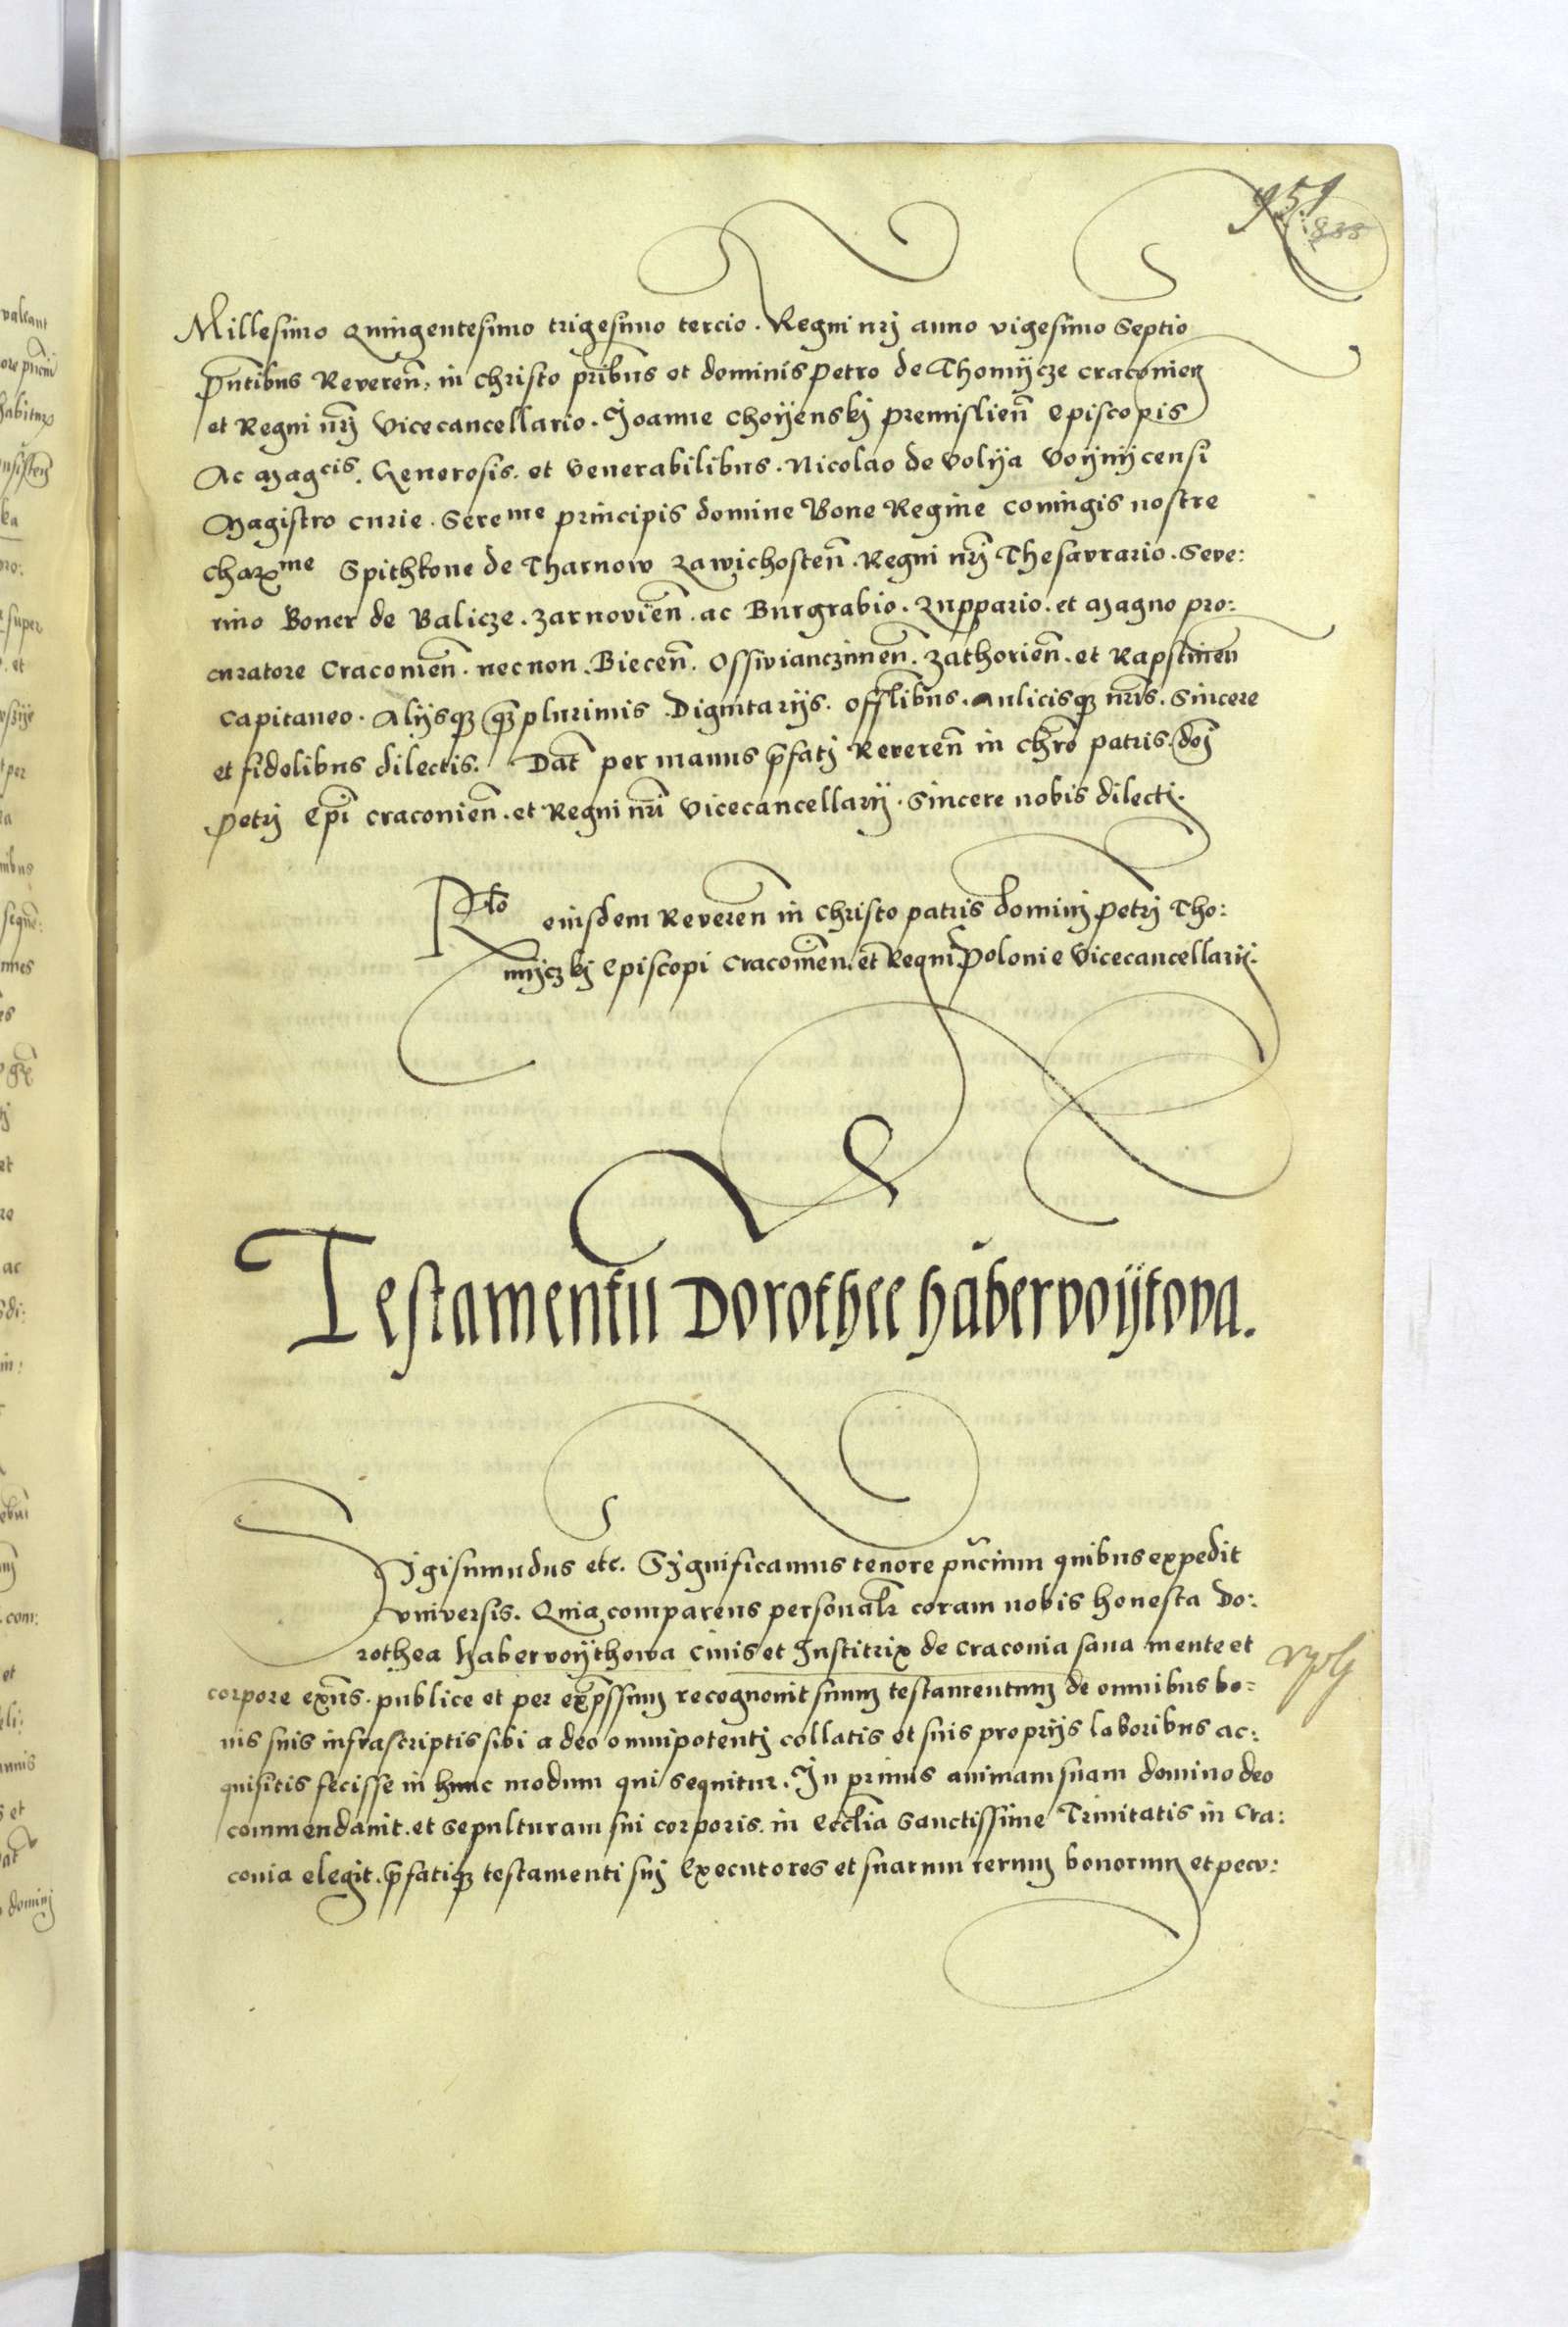 951
835
Millesimo Quingentesimo trigesimo tercio. Regni nrj anno vigesimo Septio
pn̄tibus Reveren̄. in christo pr̄ibus et dominis Petro de Thomijcze craconien̄
et Regni nr̄j Vicecancellario. Joanne Choyenskj premislien̄ Episcopis
Ac Magcis. Generosis. et Venerabilibus. Nicolao de Volija Voijnijcensi
Magistro curie. Sereme principis domine Bone Regine coniugis nostre
charme Spithkone de Tharnow Zawichosten̄. Regni nr̄j Thesavrario. Seve:
rino Boner de Balicze. Zarnovien̄. ac Burgrabio. Zuppario. et Magno pro:
curatore Cracomen̄. necnon. Biecen̄. Osswianczimen̄. Zathorien̄. et Rapstinen̄
Capitaneo. Alijsqꝫ qꝫplurimis Dignitarijs. offl̄ibus. Aulicisqꝫ nr̄is. Sincere
et fidelibus dilectis. Dat̄ per manus p̄fatj Reveren̄ in chr̄o patris. dnj
Petrj Epī craconien̄. et Regni nr̄i Vicecancellarij. Sincere nobis dilectj.
Rlo eiusdem Reveren̄ in Christo patris dominj Petrj Tho:
mijczkj Episcopi Cracomien̄. et Regni Polonie Vicecancellarij.
Testamentū Dorothee Habervoijtova.
Sigismundus etc. Significamus tenore pn̄cium quibus expedit
vniversis. Quia comparens personalr̄ coram nobis honesta Do:
rothea Habervoijthowa Civis et Institrix de Craconia sana mente et
corpore exn̄s. publice et per exp̄ssum recognovit suum testamentum de omnibus bo-
nis suis infrascriptis sibi a deo omnipotentj collatis et suis proprijs laboribus ac:
quisitis fecisse in hunc modum qui sequitur. In primus animam suam domino deo
commendavit. et sepulturam sui corporis. in Eccl̄ia Sanctissime Trinitatis in Cra:
covia elegit. p̄fatiqꝫ testamenti suj Executores et suarum rerum bonorum et pecu: